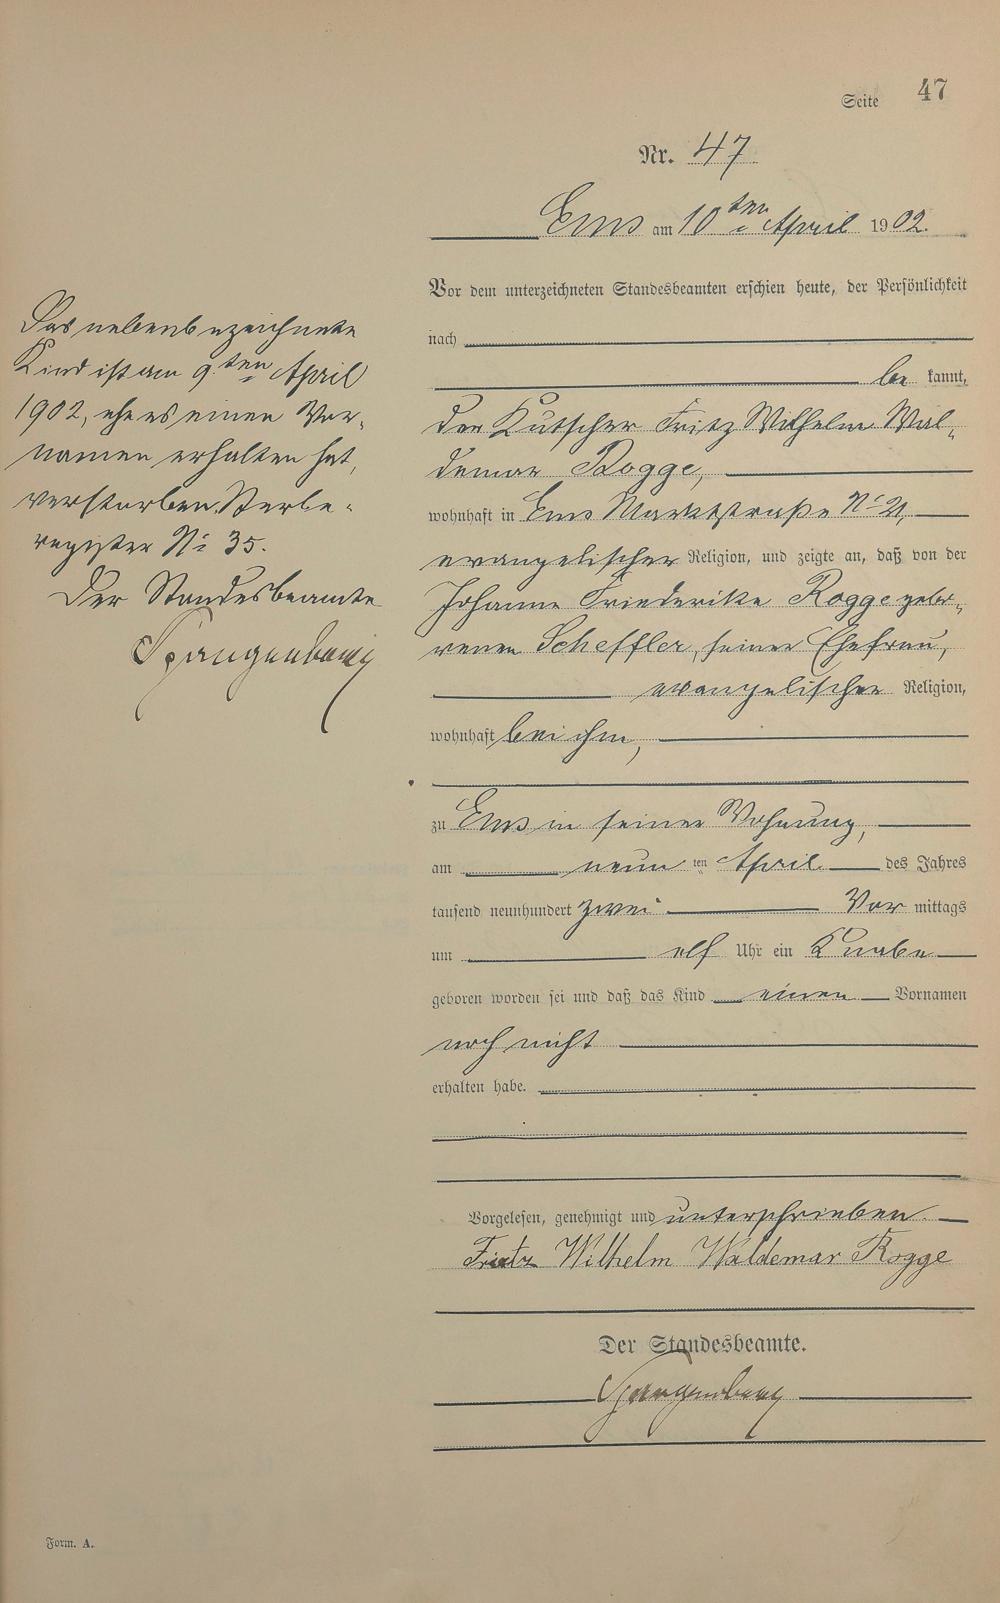 Seite 47
Nr. 47
Ems am 10ten April 1902.
Vor dem unterzeichneten Standesbeamten erschien heute, der Persönlichkeit
nach
be kannt,
der Kutscher Fritz Wilhelm Wal-
demar Rogge,
wohnhaft in Ems Marktstraße No 21,
evangelischer Religion, und zeigte an, daß von der
Johanne Friederike Rogge gebo-
renen Scheffler, seiner Ehefrau,
evangelischer Religion,
wohnhaft bei ihm,
zu Ems in seiner Wohnung,
am neun ten April des Jahres
tausend neunhundert zwei Vor mittags
um elf Uhr ein Knabe
geboren worden sei und daß das Kind einen Vornamen
noch nicht
erhalten habe.
Vorgelesen, genehmigt und unterschrieben.
Fritz Wilhelm Waldemar Rogge
Der Standesbeamte.
Spangenberg
Das nebenbezeichnete
Kind ist am 9ten April
1902, ehe es einen Vor-
namen erhalten hat,
verstorben. Sterbe-
register No 35.
Der Standesbeamte
Spangenberg
Form. A.